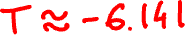 T ≈ -6.141